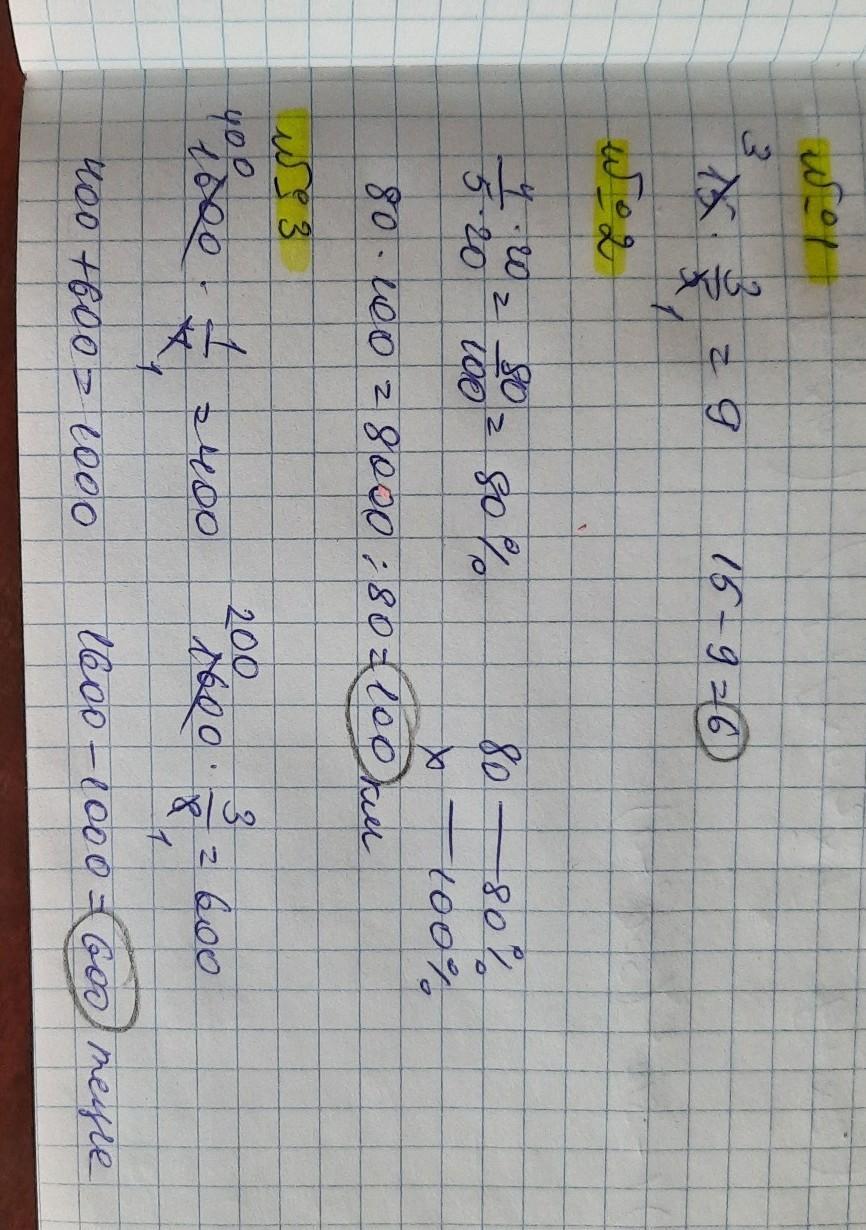 №1
3
15 · 3/5 1 = 9    15 - 9 = 6
№2
4 · 20 / 5 · 20 = 80/100 = 80%    80 — 80%
x — 100%
80 · 100 = 8000 : 80 = 100 км
№3
400    200
1600 · 1/4 1 = 400    1600 · 3/8 1 = 600
400 + 600 = 1000    1600 - 1000 = 600 тенге